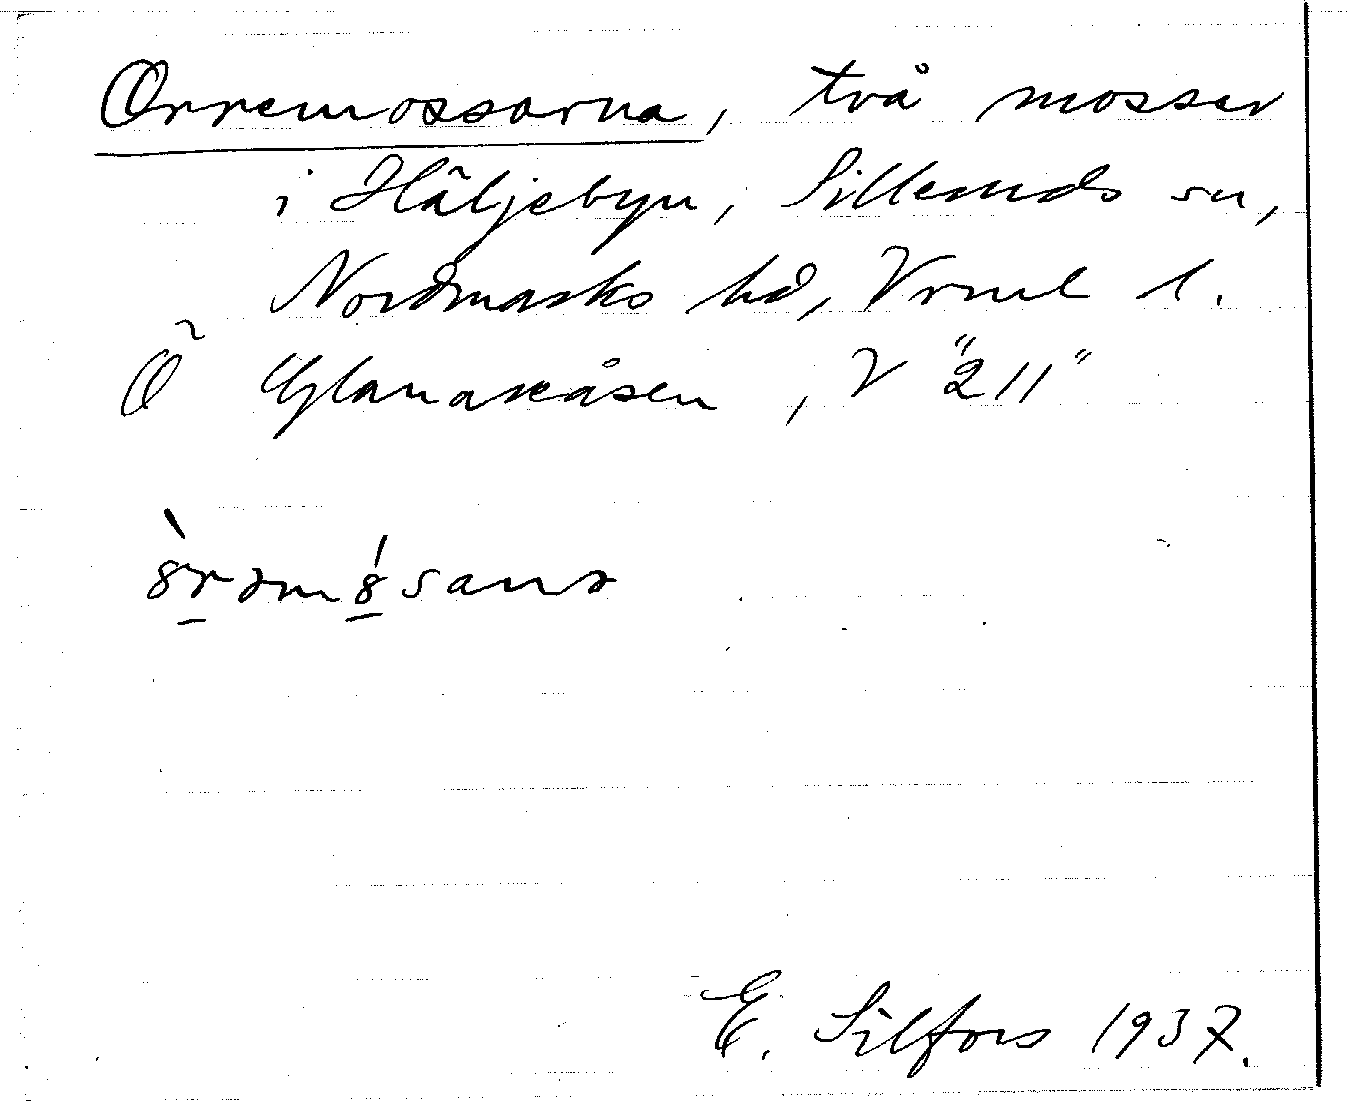 Orremossarna, två mossar
i Häljebyn, Silleruds sn,
Nordmarks hd, Vrml l.
Ö Glanaskåsen, V "211"
E. Silfors 1937.